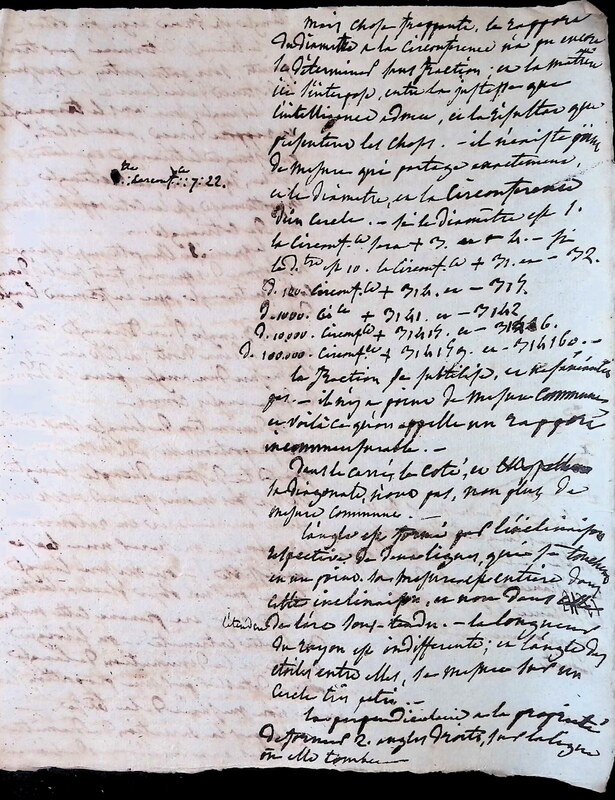 Mais chose frappante, le rapport
du diamètre a la circonference n'a pu encore
se déterminer sans fraction; et la matière
ici s'interpose, entre la justesse que
l'intelligence admet, et le résultat que
présentent les choses. - il n'existe
de mesure qui partage exactement,
et le diamètre, et la Circonference
d'un cercle. - si le diamètre est 1.
la Circonf.ce sera + 3. et - 4. - si
le d.tre est 10. la Circonf.ce + 31. et - 32.
:: circonf.ce :: 7: 22.
d. 100. Circonf.ce + 314. et - 315.
d. 1000. Ci ce + 3141. et - 3142
d. 10,000. Circonf.ce + 31415. et - 31416.
d. 100.000. Circonf.ce + 314159. et - 314160. -
la fraction se subtilise, et
pas. - il n'y a point de mesure Commune
et voilà ce qu'on appelle un Rapport
incommensurable. -
Dans le carré, le côté, et
la diagonale, n'ont pas, non plus, de
mesure commune. -
l'angle est formé par l'inclinaison
respective de deux lignes, qui se touchent
en un point. sa mesure est entière dans
cette inclinaison, et non dans
l'étendue de l'arc sous-tendu. - la longueur
du rayon est indifferente; et l'angle des
etoiles entre elles, se mesure sur un
cercle très petit. -
la perpendiculaire a la propriété
de former 2. angles droits, sur la ligne
où elle tombe -